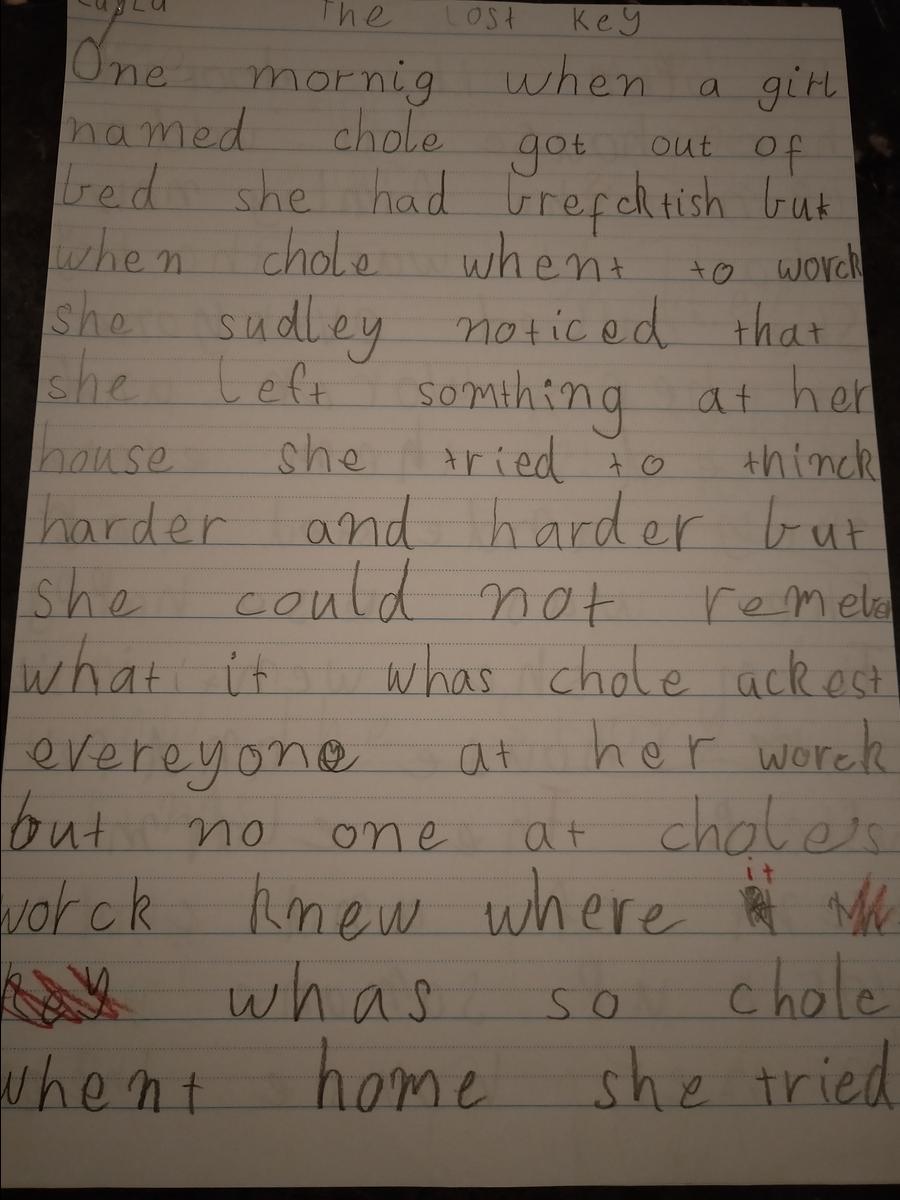 The Lost Key
One mornig when a girl
named chole got out of
bed she had brefcktish but
when chole whent to worck
she sudley noticed that
she left somthing at her
house she tried to thinck
harder and harder but
she could not
what it whas chole ackest
evereyone at her worck
but no one at chole's
worck knew where it
whas so chole
whent home she tried